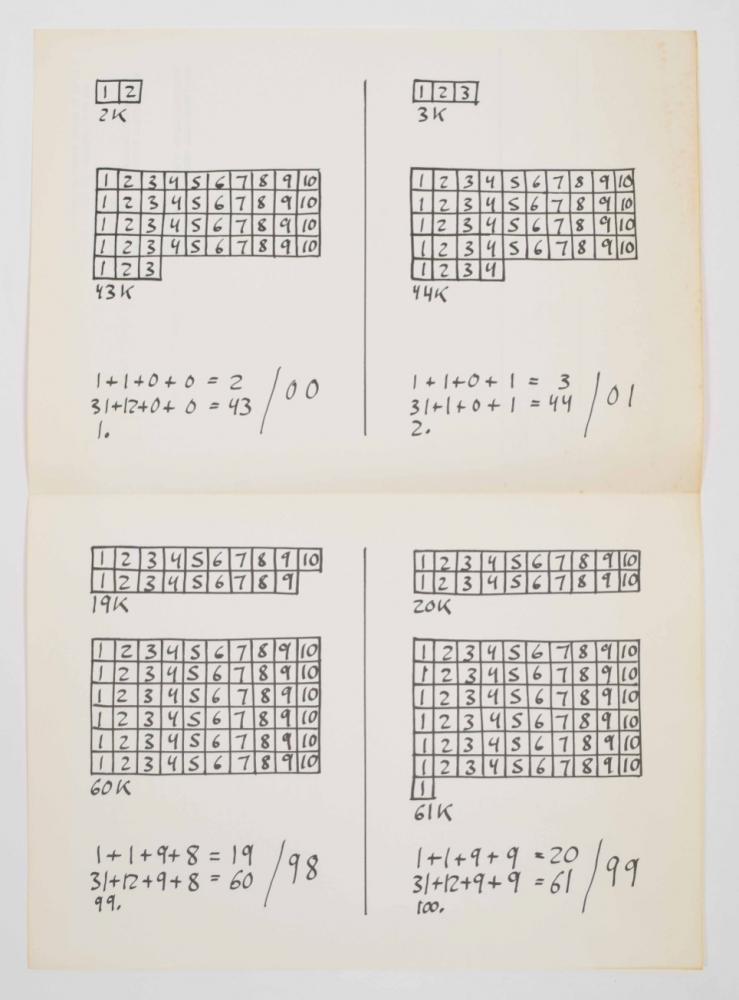 1 2
2K
1 2 3 4 5 6 7 8 9 10
1 2 3 4 5 6 7 8 9 10
1 2 3 4 5 6 7 8 9 10
1 2 3 4 5 6 7 8 9 10
1 2 3
43K
1+1+0+0 = 2
31+12+0+0 = 43
/00
1.
1 2 3
3K
1 2 3 4 5 6 7 8 9 10
1 2 3 4 5 6 7 8 9 10
1 2 3 4 5 6 7 8 9 10
1 2 3 4 5 6 7 8 9 10
1 2 3 4
44K
1+1+0+1 = 3
31+1+0+1 = 44
/01
2.
1 2 3 4 5 6 7 8 9 10
1 2 3 4 5 6 7 8 9
19K
1 2 3 4 5 6 7 8 9 10
1 2 3 4 5 6 7 8 9 10
1 2 3 4 5 6 7 8 9 10
1 2 3 4 5 6 7 8 9 10
1 2 3 4 5 6 7 8 9 10
1 2 3 4 5 6 7 8 9 10
60K
1+1+9+8 = 19
31+12+9+8 = 60
/98
99.
1 2 3 4 5 6 7 8 9 10
1 2 3 4 5 6 7 8 9 10
20K
1 2 3 4 5 6 7 8 9 10
1 2 3 4 5 6 7 8 9 10
1 2 3 4 5 6 7 8 9 10
1 2 3 4 5 6 7 8 9 10
1 2 3 4 5 6 7 8 9 10
1 2 3 4 5 6 7 8 9 10
1
61K
1+1+9+9 = 20
31+12+9+9 = 61
/99
100.